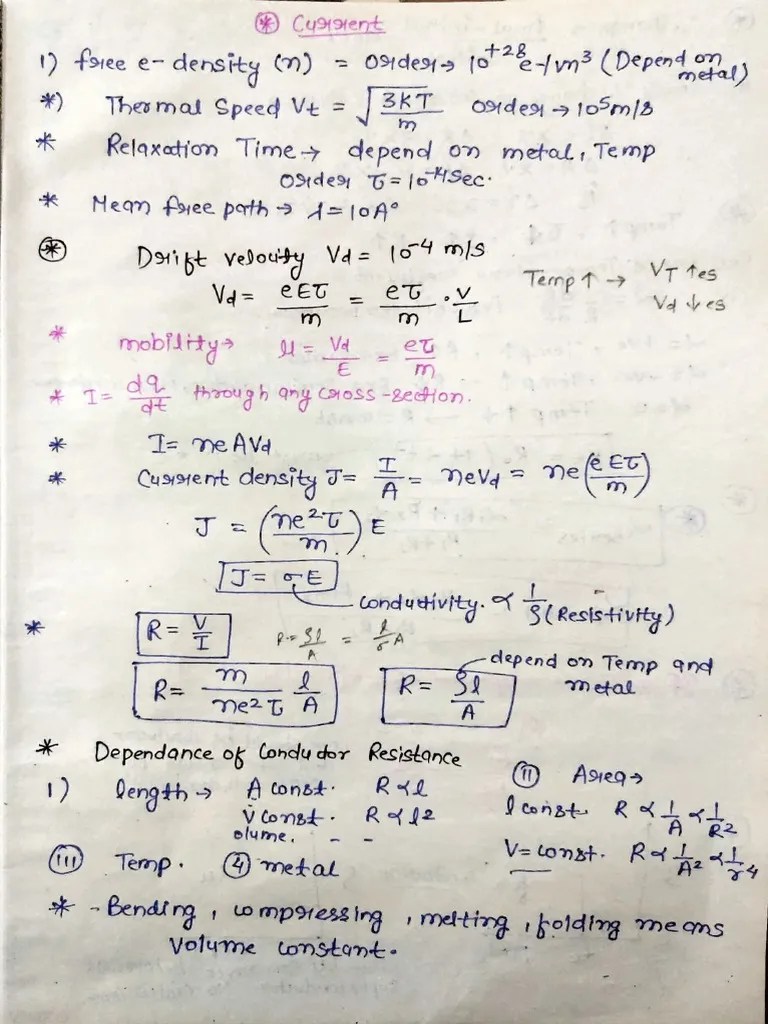 * Current
1) free e- density (n) = order → 10^+28 e-/m³ (Depend on metal)
*) Thermal Speed Vt = √(3kT/m) order → 10⁵m/s
* Relaxation Time → depend on metal, Temp
order τ = 10^-14 Sec.
* Mean free path → λ = 10A°
* Drift velocity Vd = 10^-4 m/s
Vd = eEτ/m = eτ/m · V/L Temp ↑ → VT ↑es Vd ↓es
* mobility → μ = Vd/E = eτ/m
* I = dq/dt through any cross-section.
* I = neAVd
* Current density J = I/A = neVd = ne(eEτ/m)
J = (ne²τ/m) E
J = σE
conductivity. ∝ 1/ρ (Resistivity)
* R = V/I R = ρl/A = l/σA
R = m/ne²τ l/A R = ρl/A depend on Temp and metal
* Dependance of Conductor Resistance
1) length → A const. R ∝ l
Volume const. R ∝ l²
(ii) Area →
l const. R ∝ 1/A ∝ 1/R²
V = const. R ∝ 1/A² ∝ 1/r⁴
(iii) Temp. (4) metal
* - Bending, compressing, melting, folding means
Volume constant.